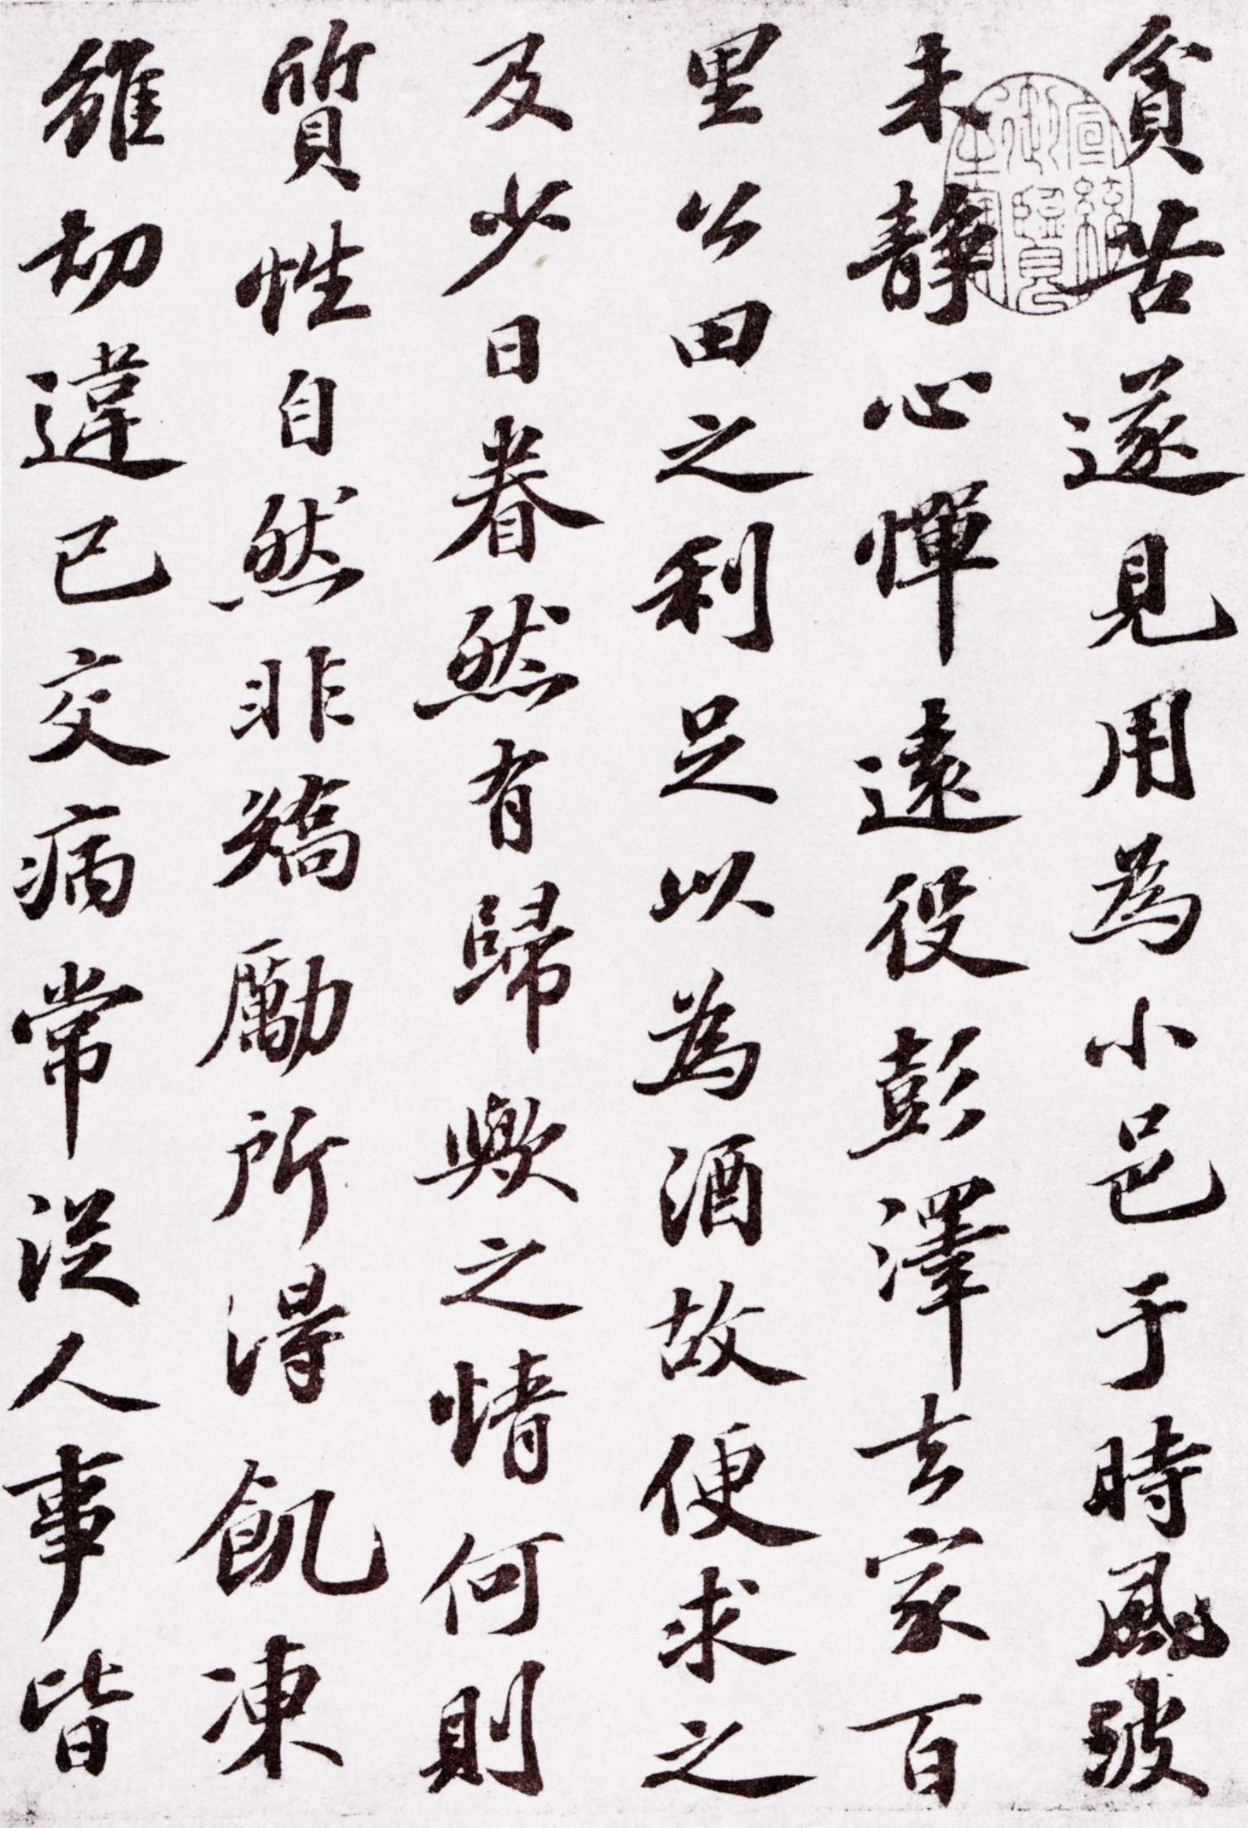 貧苦遂見用為小邑于時風波
未靜心憚遠役彭澤去家百
里公田之利足以為酒故便求之
及少日眷然有歸歟之情何則
質性自然非矯勵所得飢凍
雖切違已交病常從人事皆
宣統御覽之寶